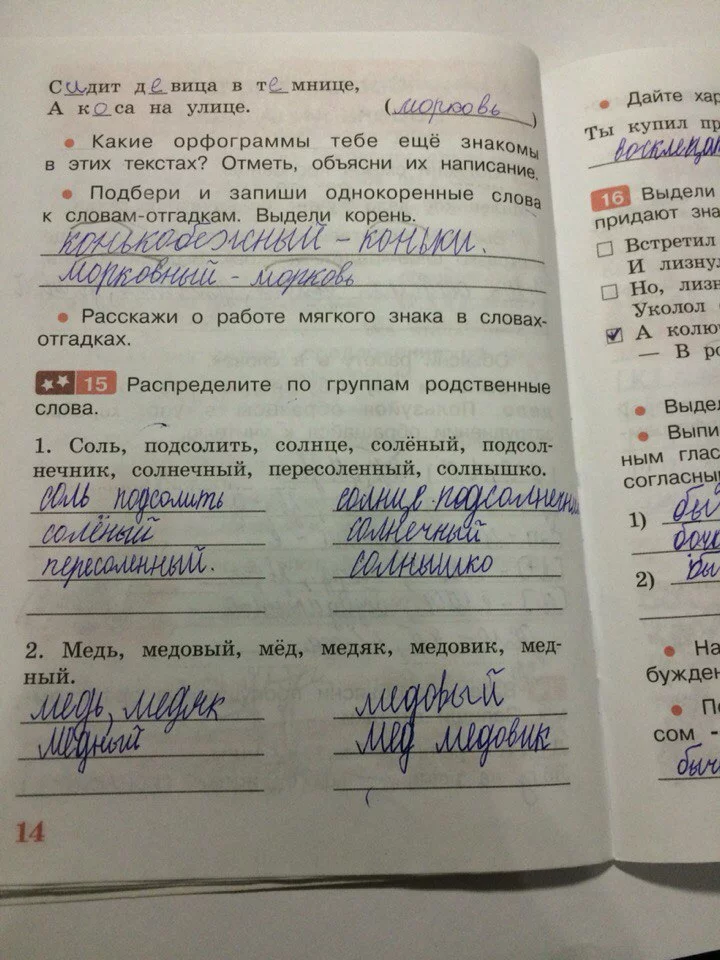 Сидит девица в темнице,
А коса на улице. (морковь)
• Какие орфограммы тебе ещё знакомы
в этих текстах? Отметь, объясни их написание.
• Подбери и запиши однокоренные слова
к словам-отгадкам. Выдели корень.
конькобежный - коньки.
морковный - морковь
• Расскажи о работе мягкого знака в словах-
отгадках.
15 Распределите по группам родственные
слова.
1. Соль, подсолить, солнце, солёный, подсол-
нечник, солнечный, пересоленный, солнышко.
соль подсолить солнце подсолнечник
солёный солнечный
пересоленный. солнышко
2. Медь, медовый, мёд, медяк, медовик, мед-
ный.
медь, медяк медовый
медный мед медовик
14
• Дайте хар
Ты купил пр
восклецат
16 Выдели
придают зна
Встретил
И лизнул
Но, лизн
Уколол
А колю
— В ро
• Выдел
• Выпи
ным глас
согласны
1) бы
бочо
2) бы
• На
бужден
• По
сом -
быч